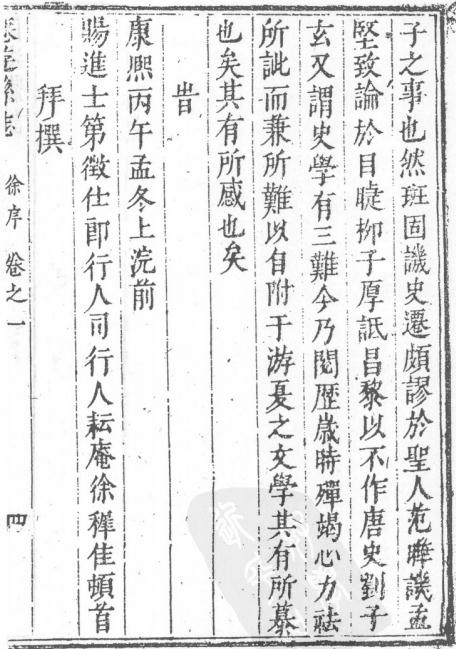 子之事也然班固譏史遷頗謬於聖人范曄譏孟
堅致論於目睫柳子厚詆昌黎以不作唐史劉子
玄又謂史學有三難今乃閱歷歲時殫竭心力祛
所訿而兼所難以自附于游夏之文學其有所慕
也矣其有所感也矣
旹
康熙丙午孟冬上浣前
賜進士第徵仕郎行人司行人耘庵徐穉佳頓首
拜撰
縣志 徐序 卷之一 四